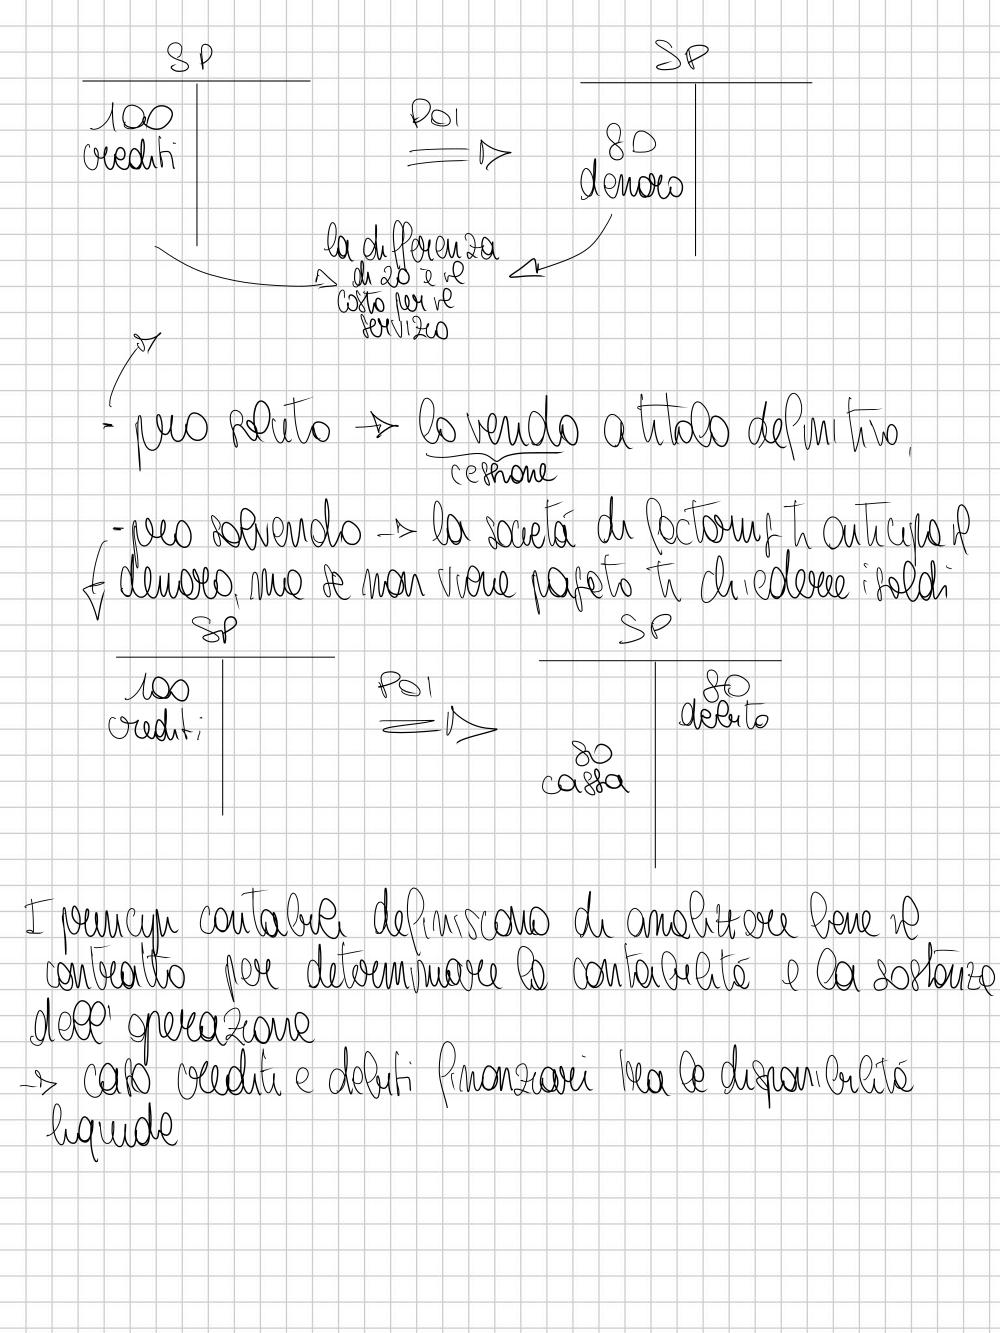 SP
SP
100
crediti
POI
80
denaro
la differenza
di 20 è il
costo per il
servizio
- pro soluto → lo vendo a titolo definitivo,
cessione
- pro solvendo → la società di factoring ti anticipa il
denaro, ma se non viene pagato ti chiederne i soldi
SP
SP
100
crediti
POI
80
debito
80
cassa
I principi contabili definiscono di analizzare bene il
contratto per determinare la contabilità e la sostanza
dell' operazione
→ caso crediti e debiti finanziari tra le disponibilità
liquide